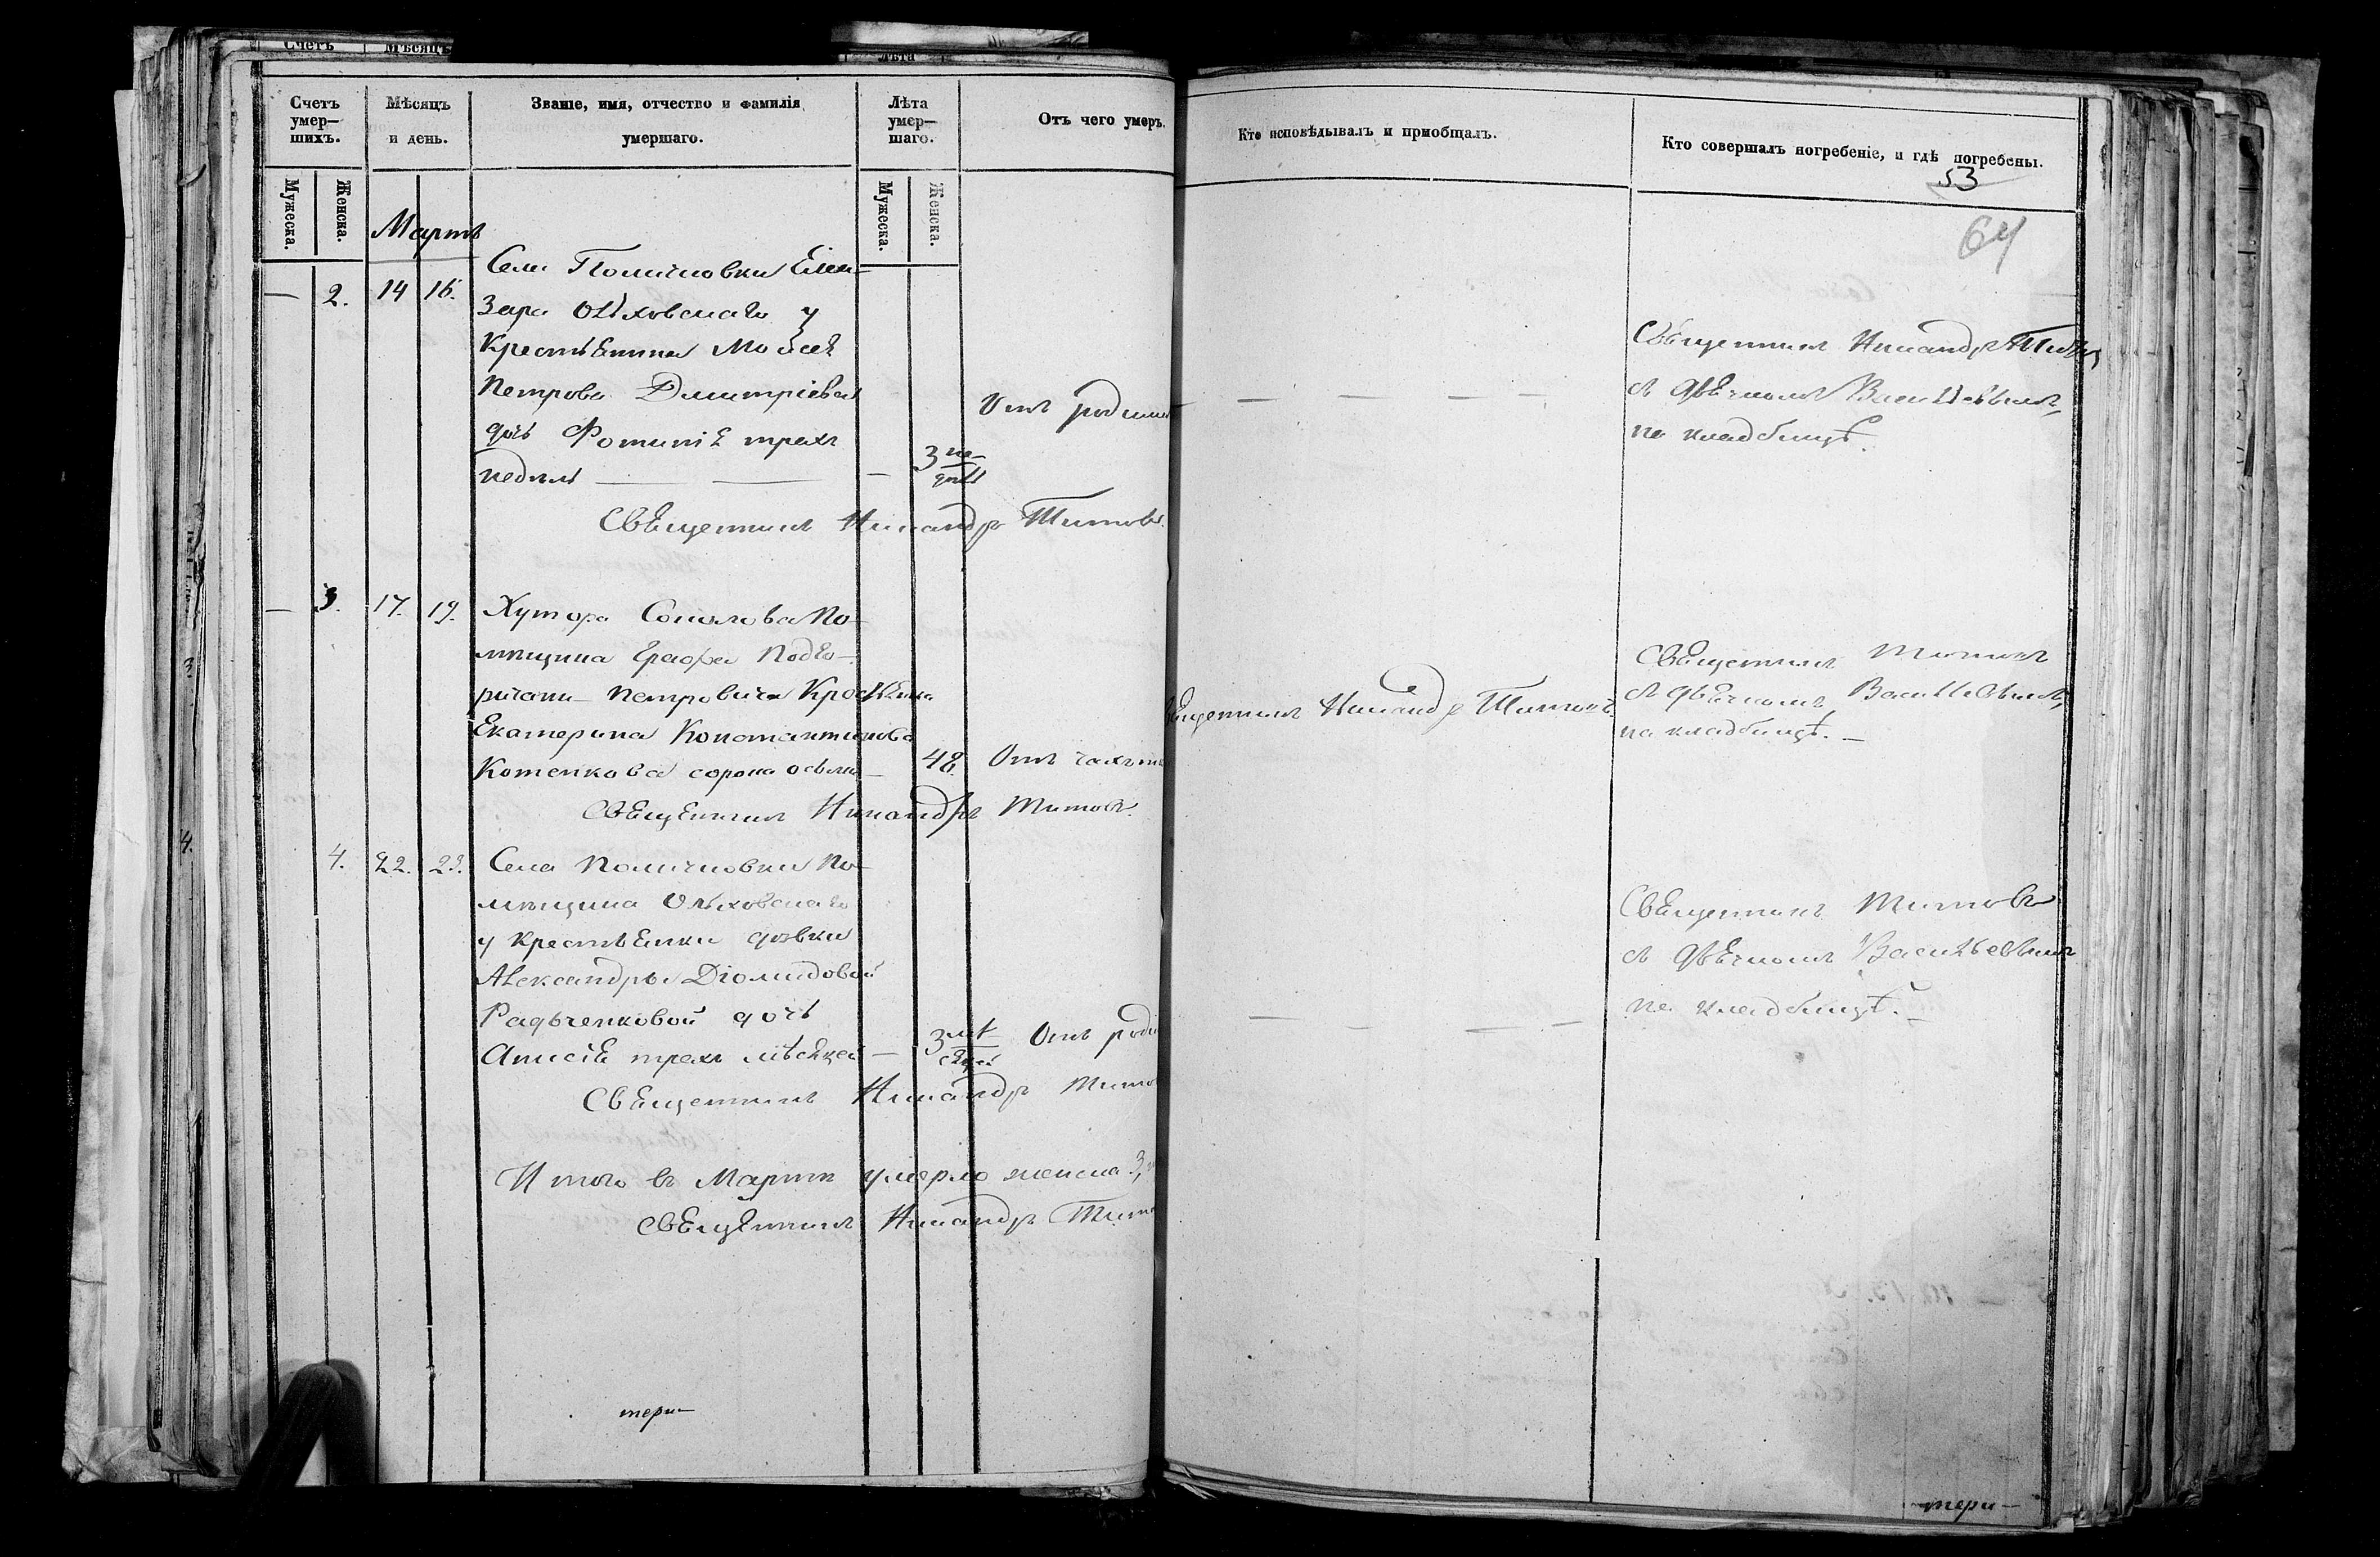 Счетъ
Мѣсяцъ
Лѣта
Счетъ умер—шихъ.
Мѣсяцъ и день.
Званіе, имя, отчество и фамилія умершаго.
Лѣта умер—шаго.
Отъ чего умеръ.
Кто исповѣдывалъ и пріобщалъ.
Кто совершалъ погребеніе, и гдѣ погребены.
53
64
Мужеска.
Женска.
Мужеска.
Женска.
Мартъ
— 2. 14 16.
Села Поличковки Елеа-
зара Ольховскаго у
Крестьянина Мойсея
Петрова Дмитріева
дочь Фотинія трехъ
недѣль — — — 3 не-
дѣль
Отъ родим
— — — —
Священникъ Никандръ Титовъ
съ дьячкомъ Васильевымъ,
на кладбищѣ.
Священникъ Никандръ Титовъ.
— 3. 17. 19.
Хутора Соколова По-
мѣщика Графа Подго-
ричани-Петровича Крестьянка
Екатерина Константинова
Котенкова сорока осьми — 48. Отъ чахот
Священникъ Никандръ Титовъ.
Священникъ Титовъ
съ дьячкомъ Васильевымъ,
на кладбищѣ. —
Священникъ Никандръ Титовъ.
4. 22. 23.
Села Поличковки По-
мѣщика Ольховскаго
у крестьянки дѣвки
Александры Діомидовой
Радьченковой дочь
Анисія трехъ мѣсяцей — 3 мѣ-
сяцей
Отъ роди
— — — —
Священникъ Титовъ
съ дьячкомъ Васильевымъ
на кладбищѣ. —
Священникъ Никандръ Титов
Итого въ Мартѣ умерло женска 3,
Священникъ Никандръ Тит
тери-
тери-
3
4.